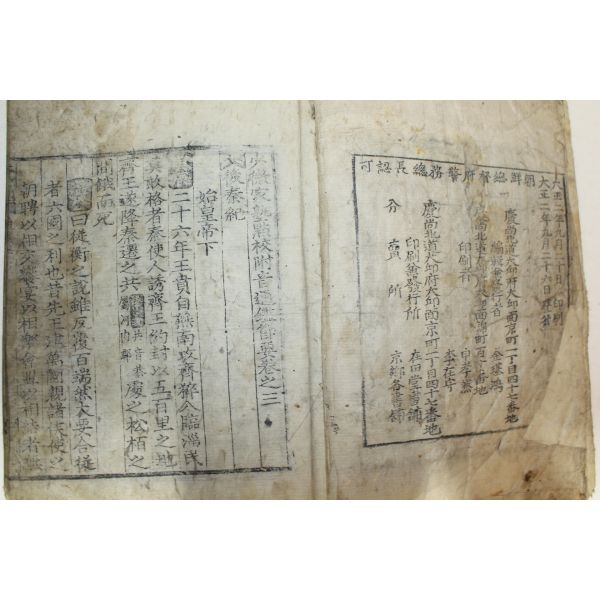 朝鮮總督府警務總長認可
大正二年九月二十日印刷
大正二年九月二十六日發行
慶尚北道大邱府大邱南京町一丁目四十七番地
編輯兼發行者 金璂鴻
印刷者 李在寧
慶尚北道大邱府大邱南京町一丁目四十七番地
印刷兼發行所 在田堂書鋪
分賣所 京鄉各書鋪
少微家塾點校附音通鑑節要卷之三
後秦紀
始皇帝下
二十六年王賁自燕南攻齊猝入臨淄民
莫敢格者秦使人誘齊王約封以五百里之地
齊王遂降秦遷之共處之松柏之
間餓而死
曰從衡之說雖反覆百端然大要合從
者六國之利也昔先王建萬國親諸侯使之
朝聘以相交饗宴以相樂會盟以相結者無